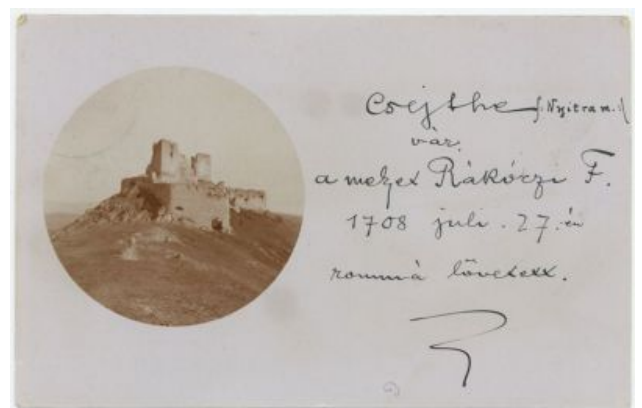 Csejthe /: Nyitram. :/
vár.
a melyet Rákóczi F.
1708 juli. 27.-én
rommá lövetett.